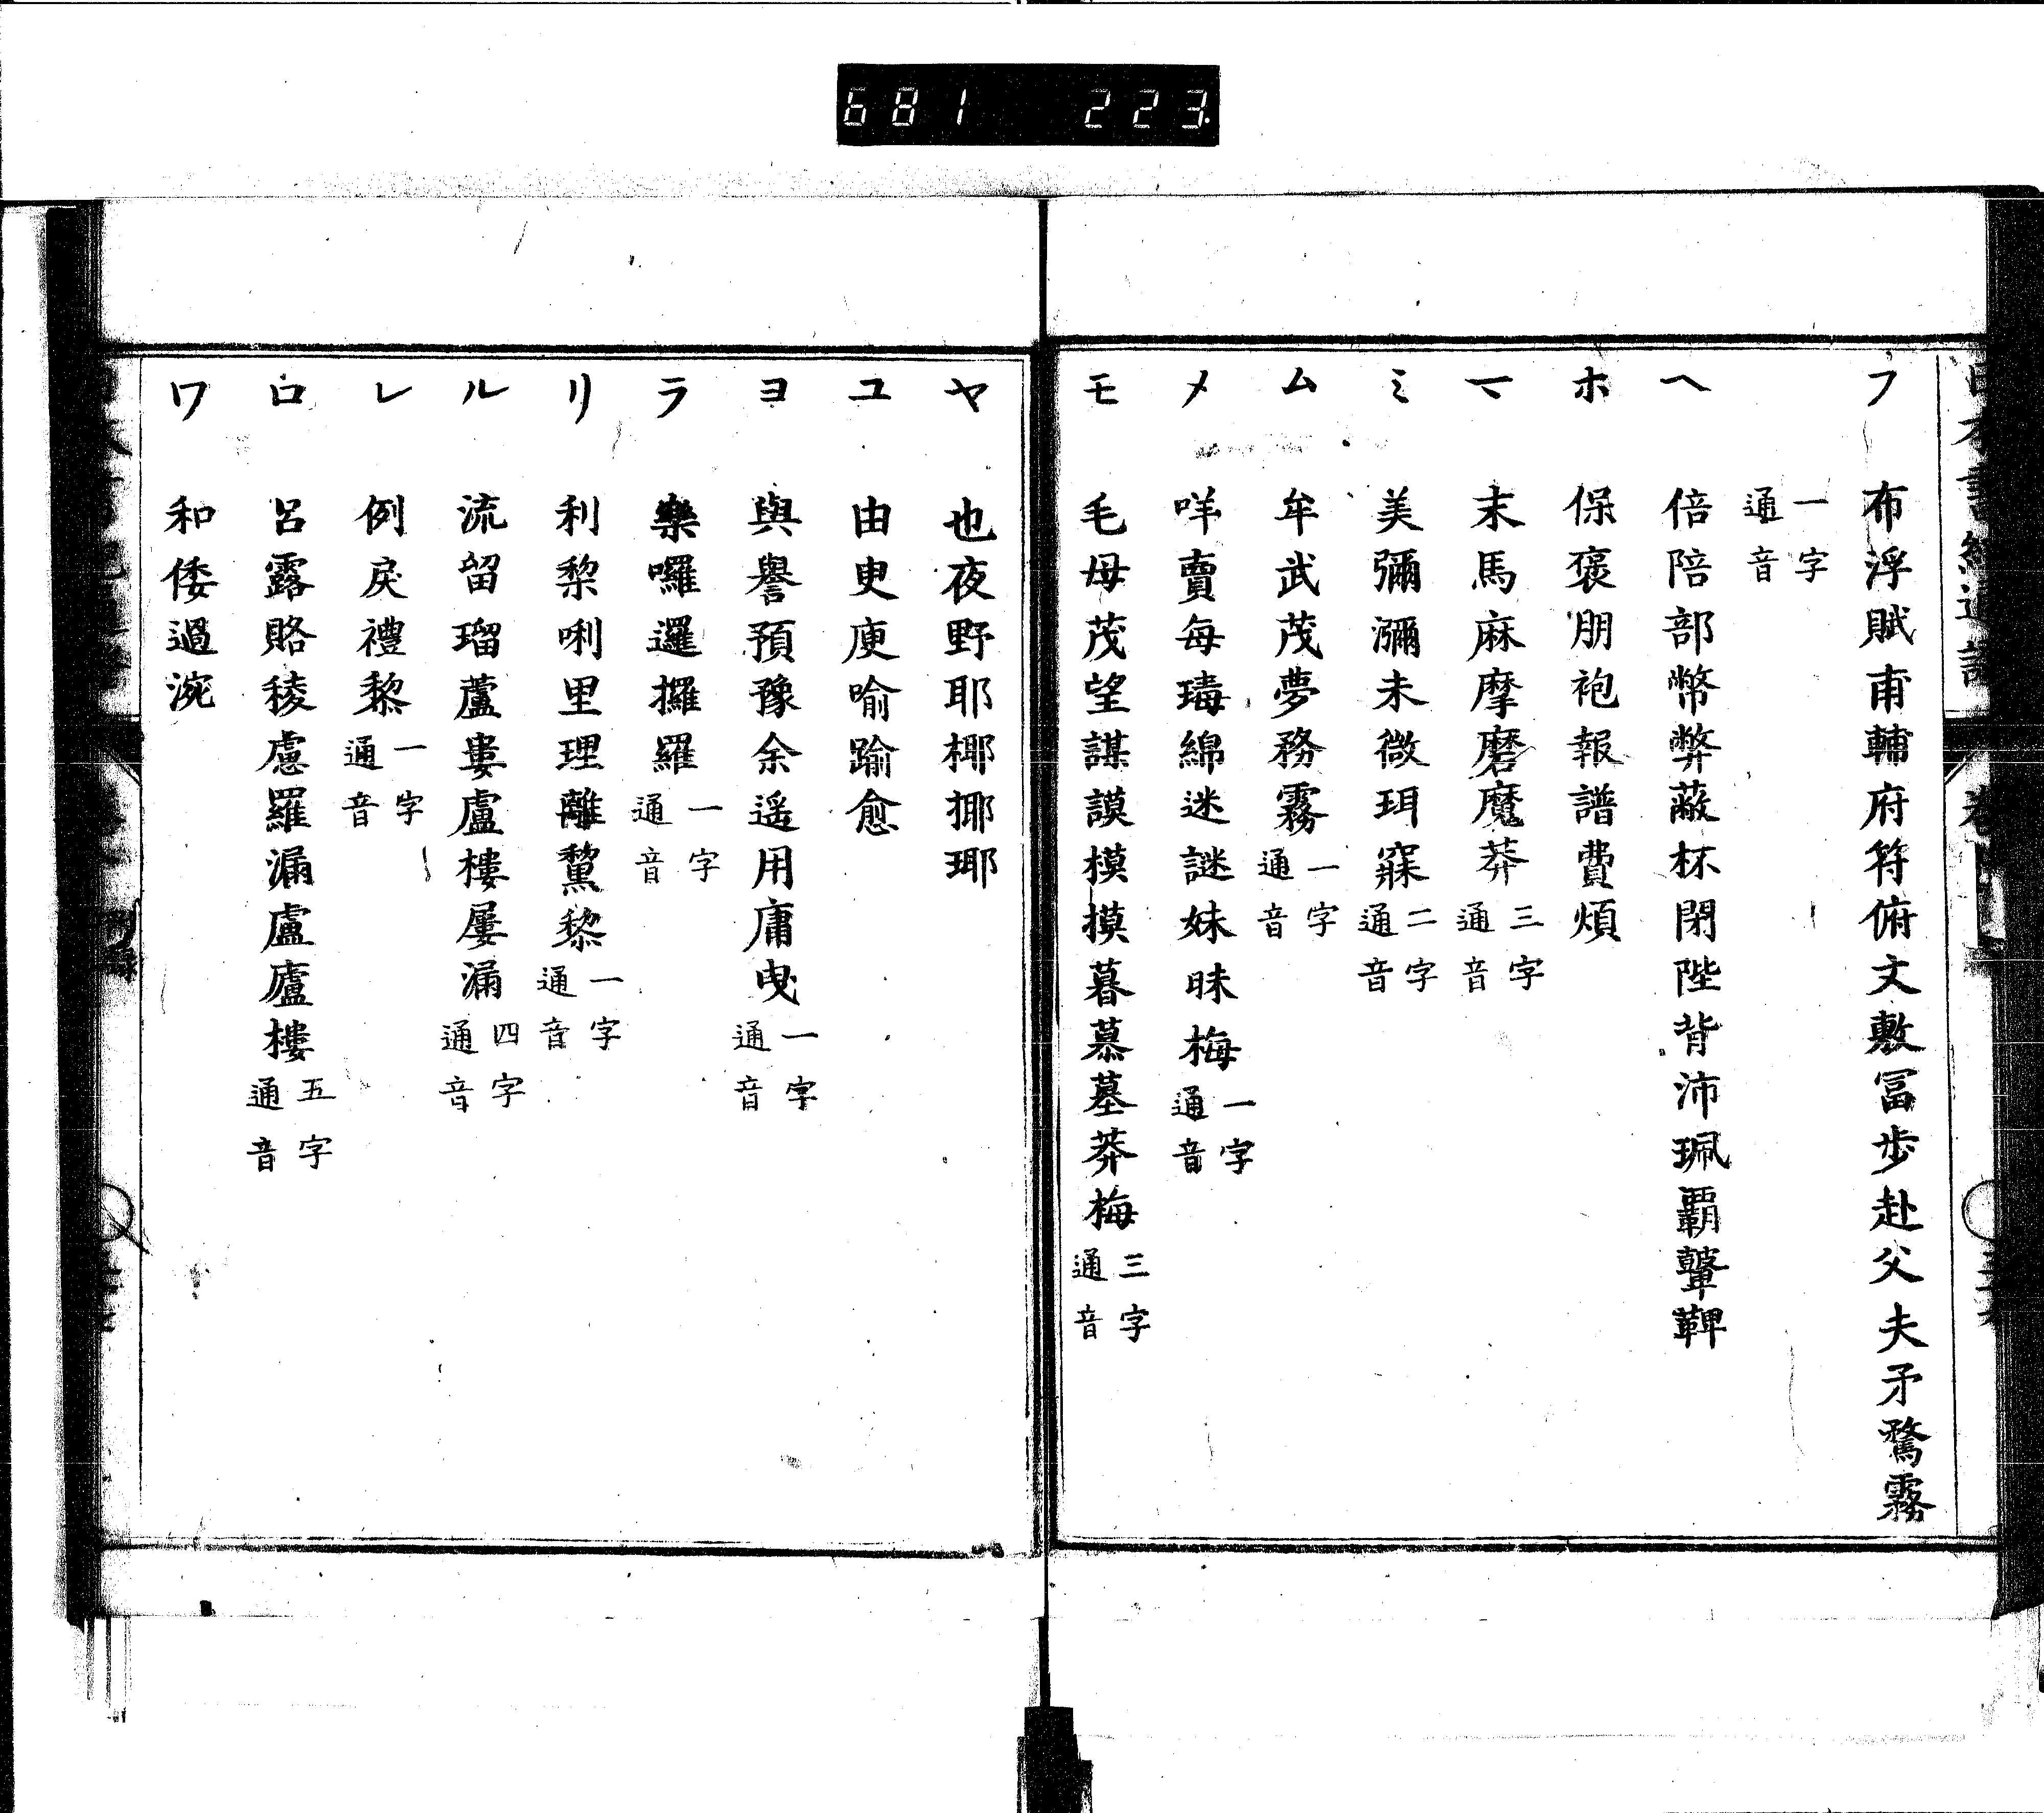 681 223
フ 布浮賦甫輔府符俯文敷冨歩赴父夫矛鶩霧
一字通音
ヘ 倍陪部幣弊蔽杯閉陛背沛珮覇鼙鞞
ホ 保褒朋袍報譜費煩
マ 末馬麻摩磨魔莽三字通音
ミ 美彌瀰未微珥寐二字通音
ム 牟武茂夢務霧一字通音
メ 咩賣每瑇綿迷謎妹昧梅一字通音
モ 毛母茂望謀謨模摸暮慕墓莽梅三字通音
ヤ 也夜野耶椰揶瑘
ユ 由臾庾喻踰愈
ヨ 與譽預豫余遥用庸曳一字通音
ラ 樂囉邏攞羅一字通音
リ 利梨唎里理離鵹黎一字通音
ル 流留瑠蘆婁盧樓屢漏四字通音
レ 例戾禮黎一字通音
ロ 呂露賂稜慮羅漏盧廬樓五字通音
ワ 和倭過涴